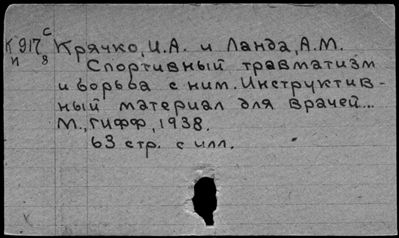 К 917 с Крячко, И.А. и Ланда, А.М.
и 8 Спортивный травматизм
и борьба с ним. Инструктив-
ный материал для врачей...
М., ГИФФ, 1938.
63 стр. с илл.